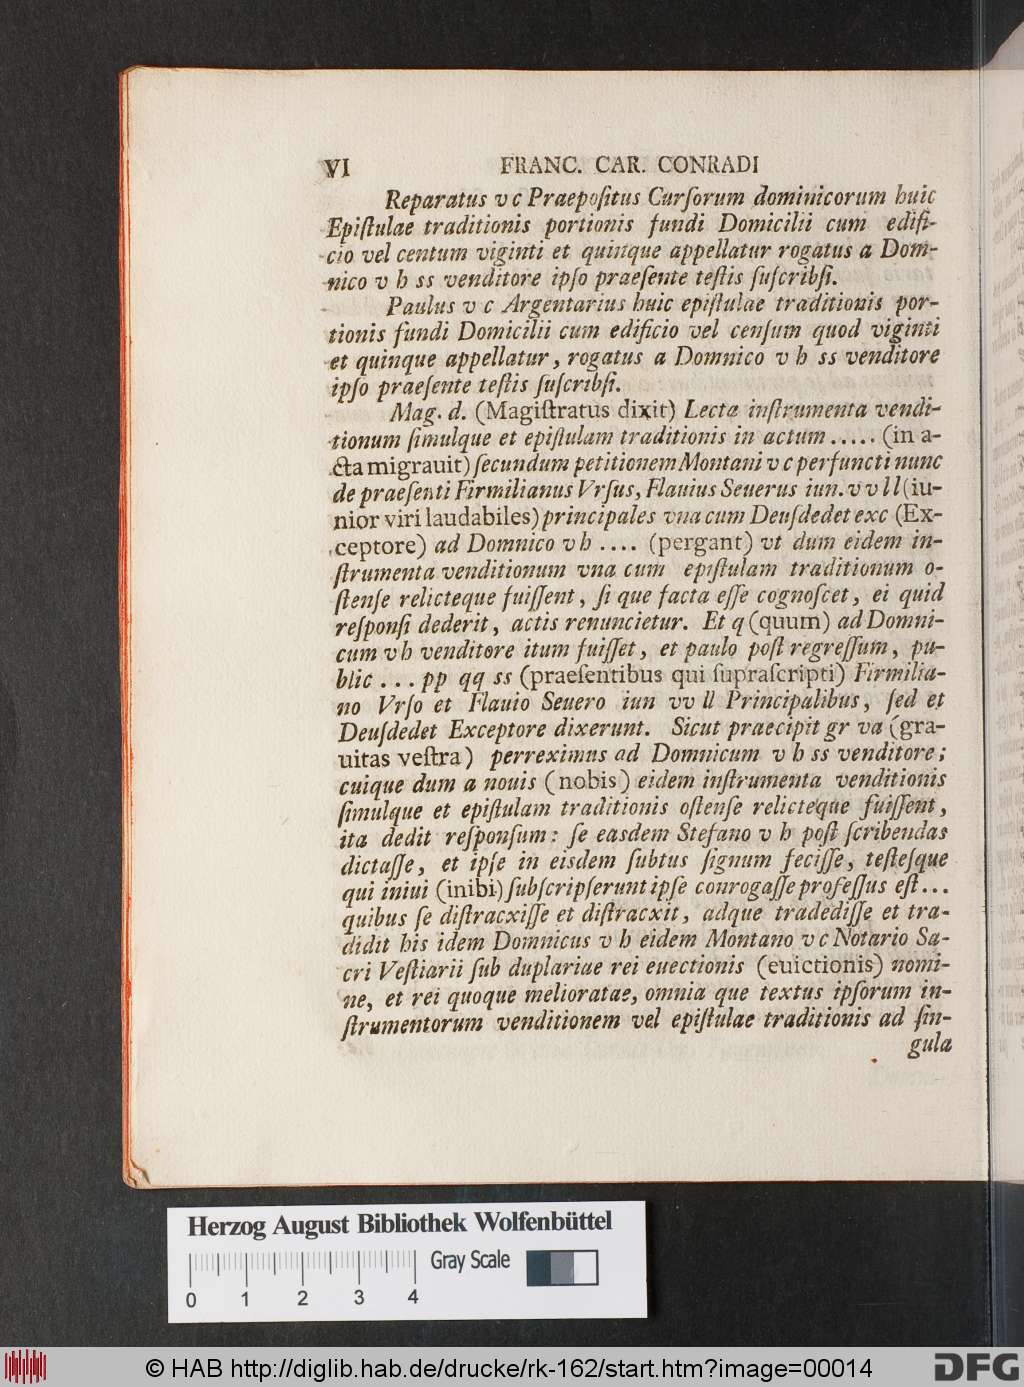 VI FRANC. CAR. CONRADI
Reparatus v c Praepoſitus Curſorum dominicorum huic
Epiſtulae traditionis portionis fundi Domicilii cum edifi-
cio vel centum viginti et quinque appellatur rogatus a Dom-
nico v h ss venditore ipſo praeſente teſtis ſuſcribſi.
Paulus v c Argentarius huic epiſtulae traditionis por-
tionis fundi Domicilii cum edificio vel cenſum quod viginti
et quinque appellatur, rogatus a Domnico v h ss venditore
ipſo praeſente teſtis ſuſcribſi.
Mag. d. (Magiſtratus dixit) Lecta inſtrumenta vendi-
tionum ſimulque et epiſtulam traditionis in actum ..... (in a-
cta migrauit) ſecundum petitionem Montani v c perfuncti nunc
de praeſenti Firmilianus Vrſus, Flauius Seuerus iun. v v l l (iu-
nior viri laudabiles) principales vna cum Deuſdedet exc (Ex-
ceptore) ad Domnico v h .... (pergant) vt dum eidem in-
ſtrumenta venditionum vna cum epiſtulam traditionum o-
ſtenſe relicteque fuiſſent, ſi que facta eſſe cognoſcet, ei quid
reſponſi dederit, actis renuncietur. Et q (quum) ad Domni-
cum v h venditore itum fuiſſet, et paulo poſt regreſſum, pu-
blic ... pp qq ss (praeſentibus qui ſupraſcripti) Firmilia-
no Vrſo et Flauio Seuero iun vv ll Principalibus, ſed et
Deuſdedet Exceptore dixerunt. Sicut praecipit gr va (gra-
uitas veſtra) perreximus ad Domnicum v h ss venditore;
cuique dum a nouis (nobis) eidem inſtrumenta venditionis
ſimulque et epiſtulam traditionis oſtenſe relicteque fuiſſent,
ita dedit reſponſum: ſe easdem Stefano v h poſt ſcribendas
dictaſſe, et ipſe in eisdem ſubtus ſignum feciſſe, teſteſque
qui iniui (inibi) ſubſcripſerunt ipſe conrogaſſe profeſſus eſt...
quibus ſe diſtracxiſſe et diſtracxit, adque tradediſſe et tra-
didit his idem Domnicus v h eidem Montano v c Notario Sa-
cri Veſtiarii ſub duplariae rei euectionis (euictionis) nomi-
ne, et rei quoque melioratae, omnia que textus ipſorum in-
ſtrumentorum venditionem vel epiſtulae traditionis ad ſin-
gula
Herzog August Bibliothek Wolfenbüttel
Gray Scale
0 1 2 3 4
© HAB http://diglib.hab.de/drucke/rk-162/start.htm?image=00014
DFG